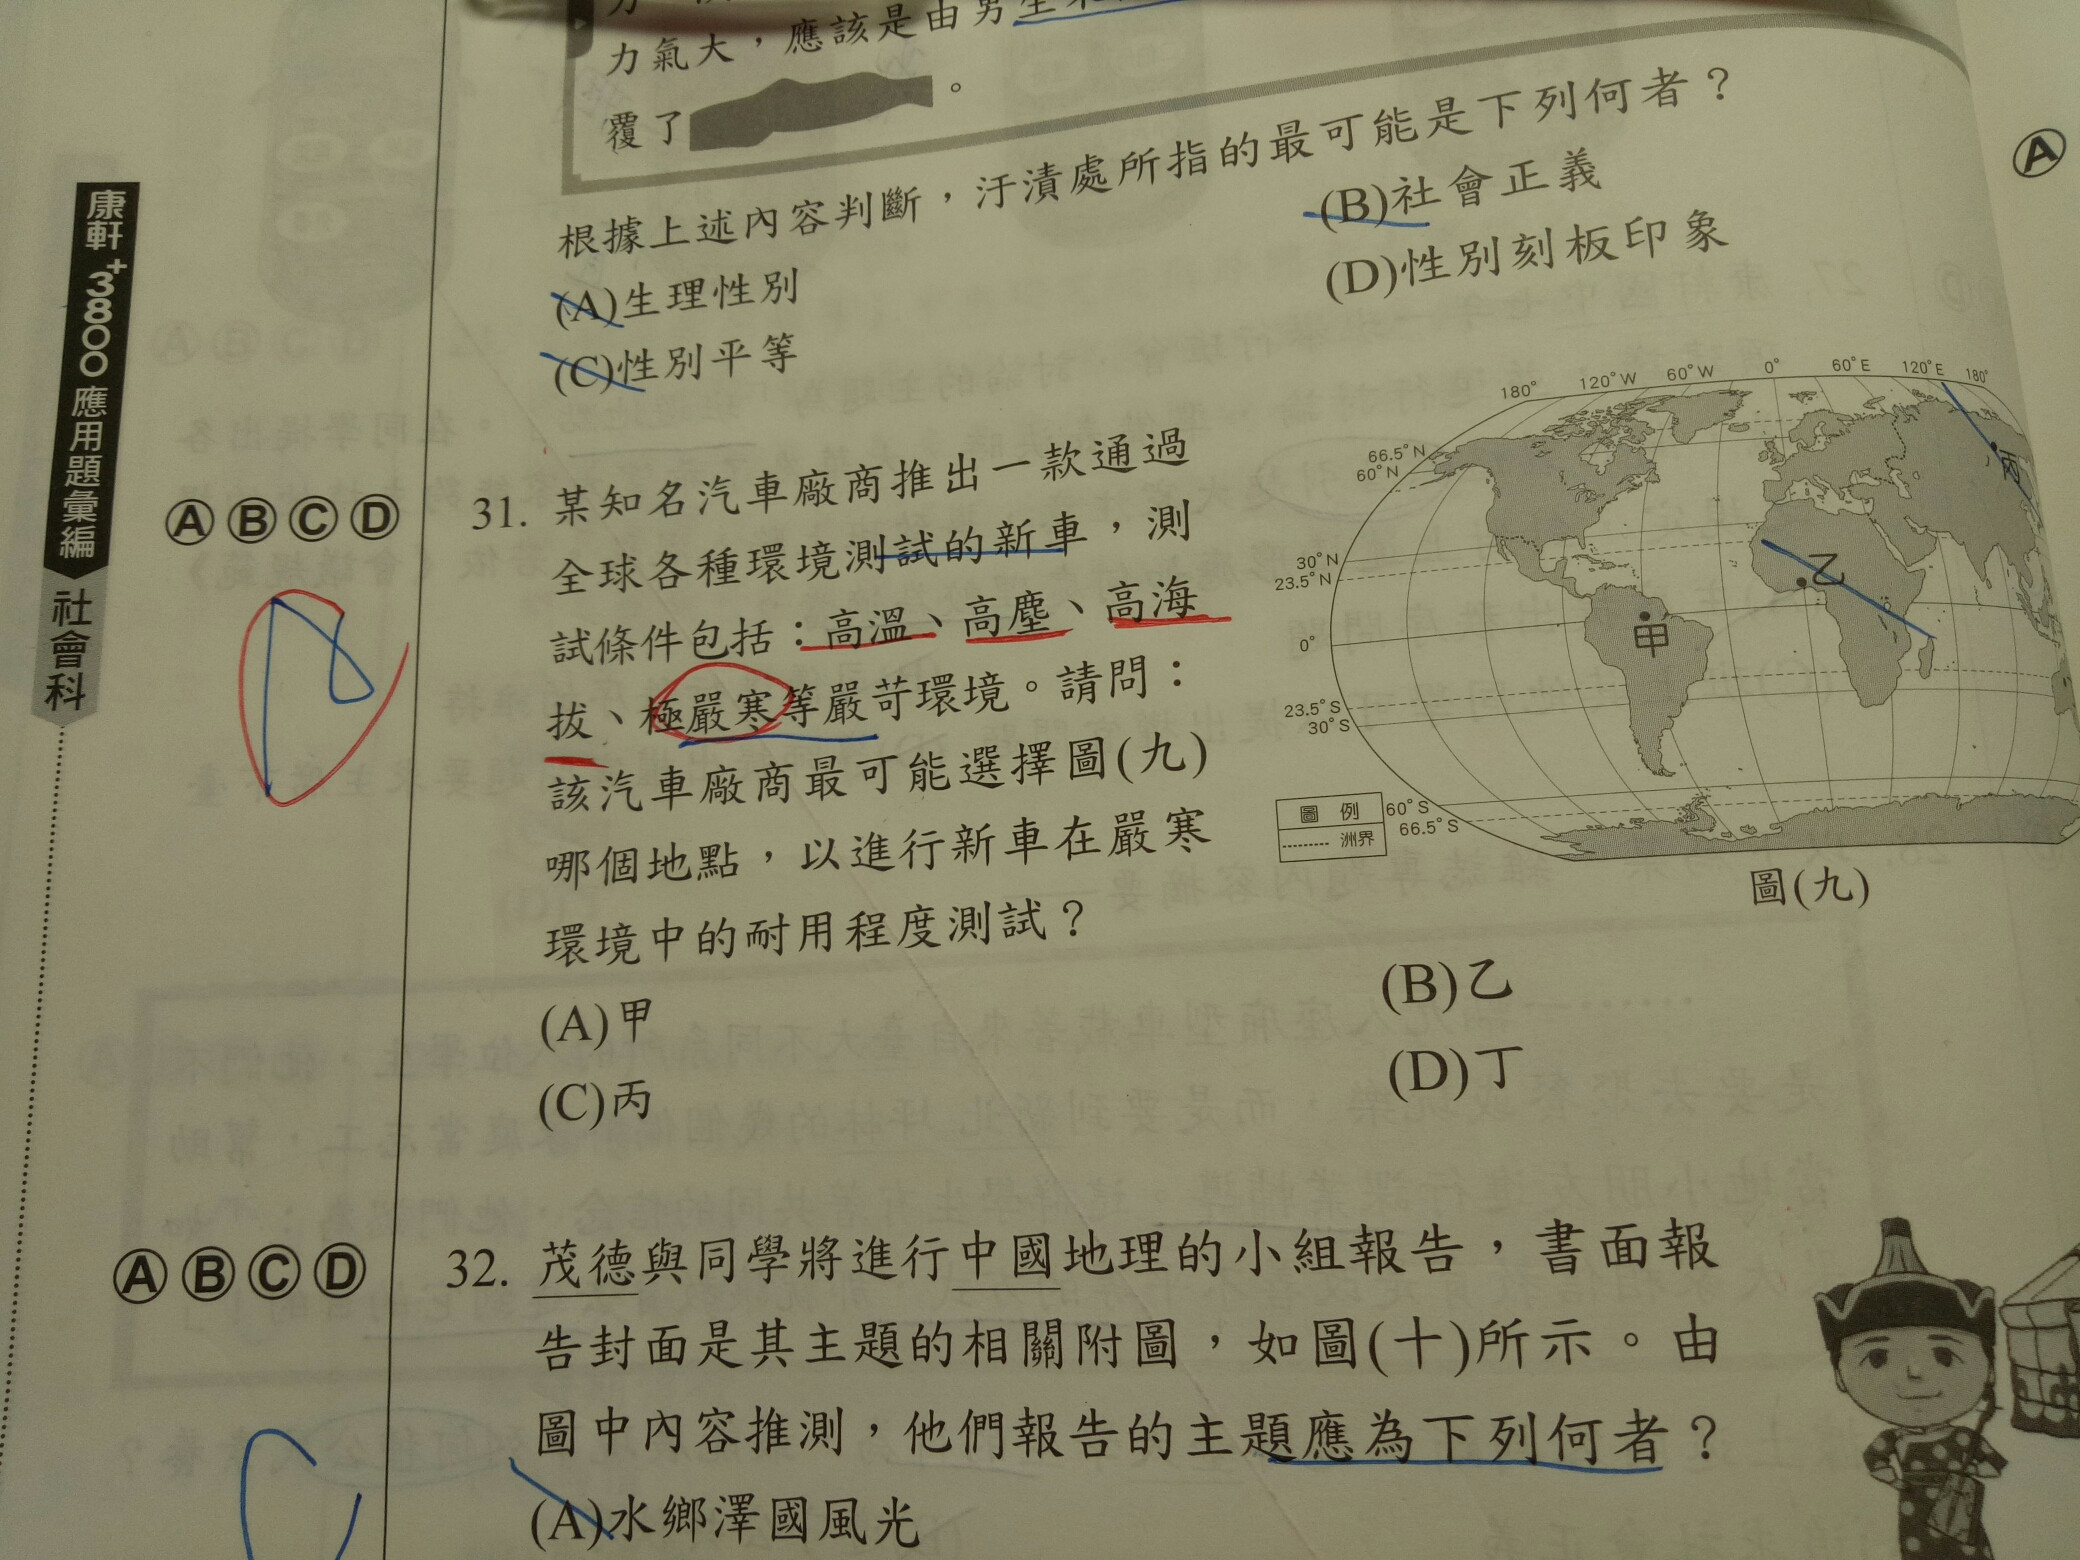 力氣大，應該是由男生
覆了　　　。
根據上述內容判斷，汙漬處所指的最可能是下列何者？
(A)生理性別
(B)社會正義
(C)性別平等
(D)性別刻板印象
康軒
+3800
應用題彙編
社會科
Ⓐ
ⒶⒷⒸⒹ
31. 某知名汽車廠商推出一款通過
全球各種環境測試的新車，測
試條件包括：高溫、高塵、高海
拔、極嚴寒等嚴苛環境。請問：
該汽車廠商最可能選擇圖(九)
哪個地點，以進行新車在嚴寒
環境中的耐用程度測試？
(A)甲
(B)乙
(C)丙
(D)丁
180° 120°W 60°W 0° 60°E 120°E 180°
66.5°N
60°N
30°N
23.5°N
0°
23.5°S
30°S
60°S
66.5°S
甲
乙
丙
圖 例
洲界
圖(九)
A
ⒶⒷⒸⒹ
32. 茂德與同學將進行中國地理的小組報告，書面報
告封面是其主題的相關附圖，如圖(十)所示。由
圖中內容推測，他們報告的主題應為下列何者？
(A)水鄉澤國風光